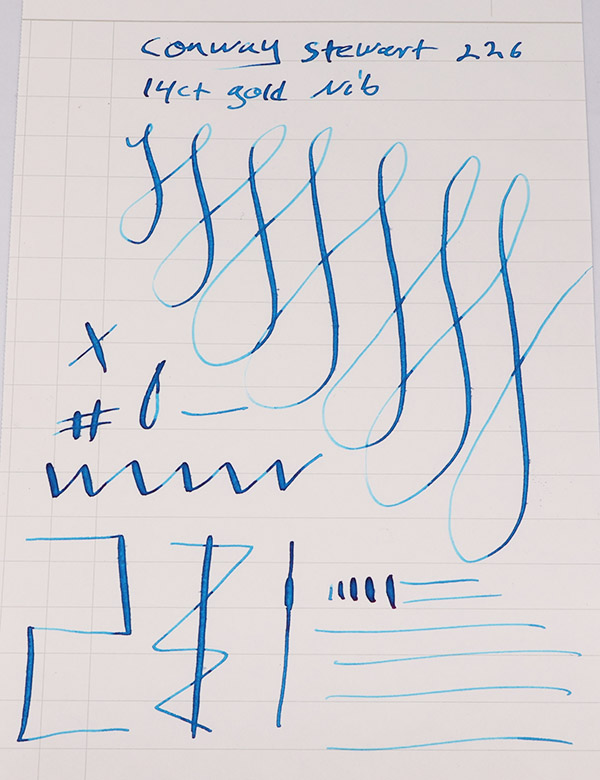 Conway Stewart 226
14ct gold Nib